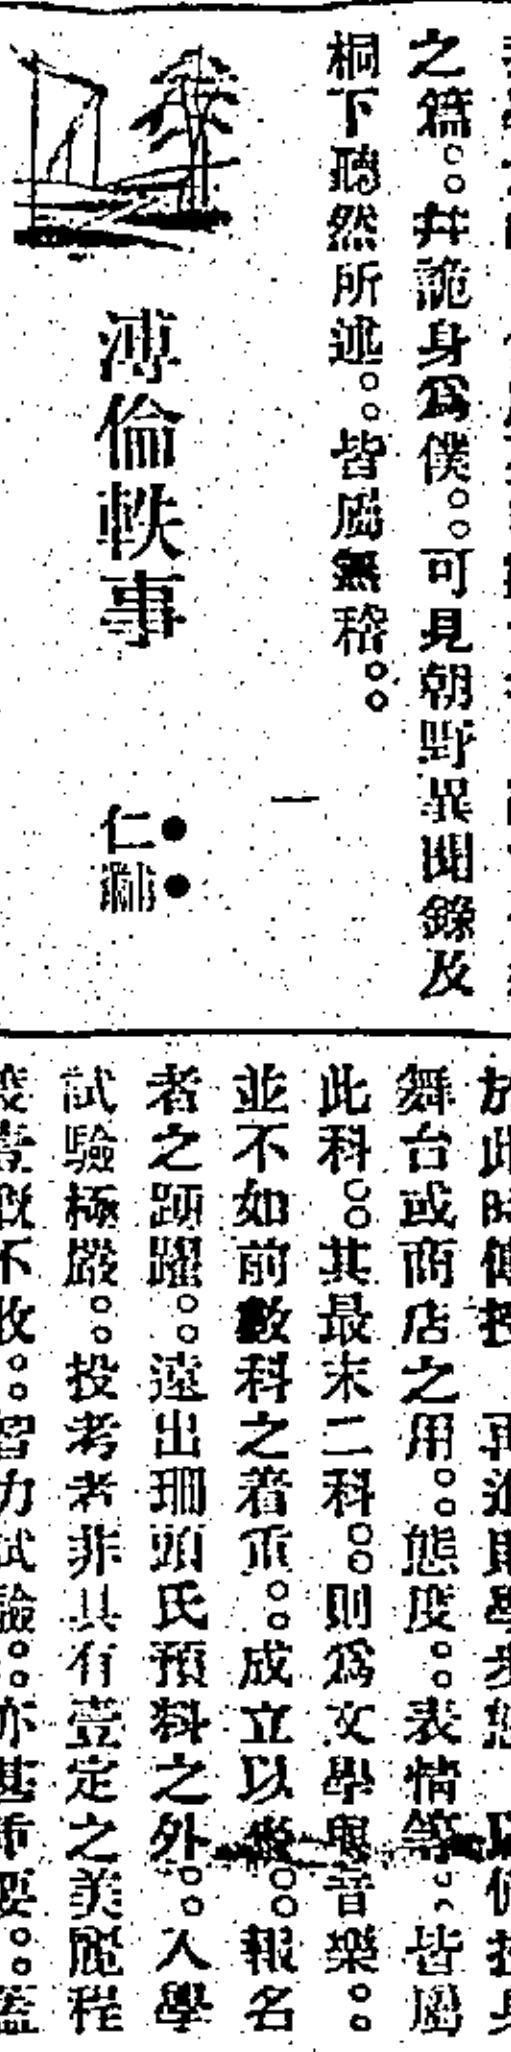 之篇。。并詭身爲僕。。可見朝野異聞錄及
桐下聽然所述。。皆屬無稽。。
一
溥倫軼事
●●
仁黼
此時傳授
再進則學
舞台或商店之用。。態度。。表情等。。皆屬
此科。。其最末二科。。則爲文學與音樂。。
並不如前數科之着重。。成立以後。。報名
者之踴躍。。遠出珊頭氏預料之外。。入學
試驗極嚴。。投考者非具有壹定之美麗程
不收。。智力試驗。。亦甚重要。。蓋